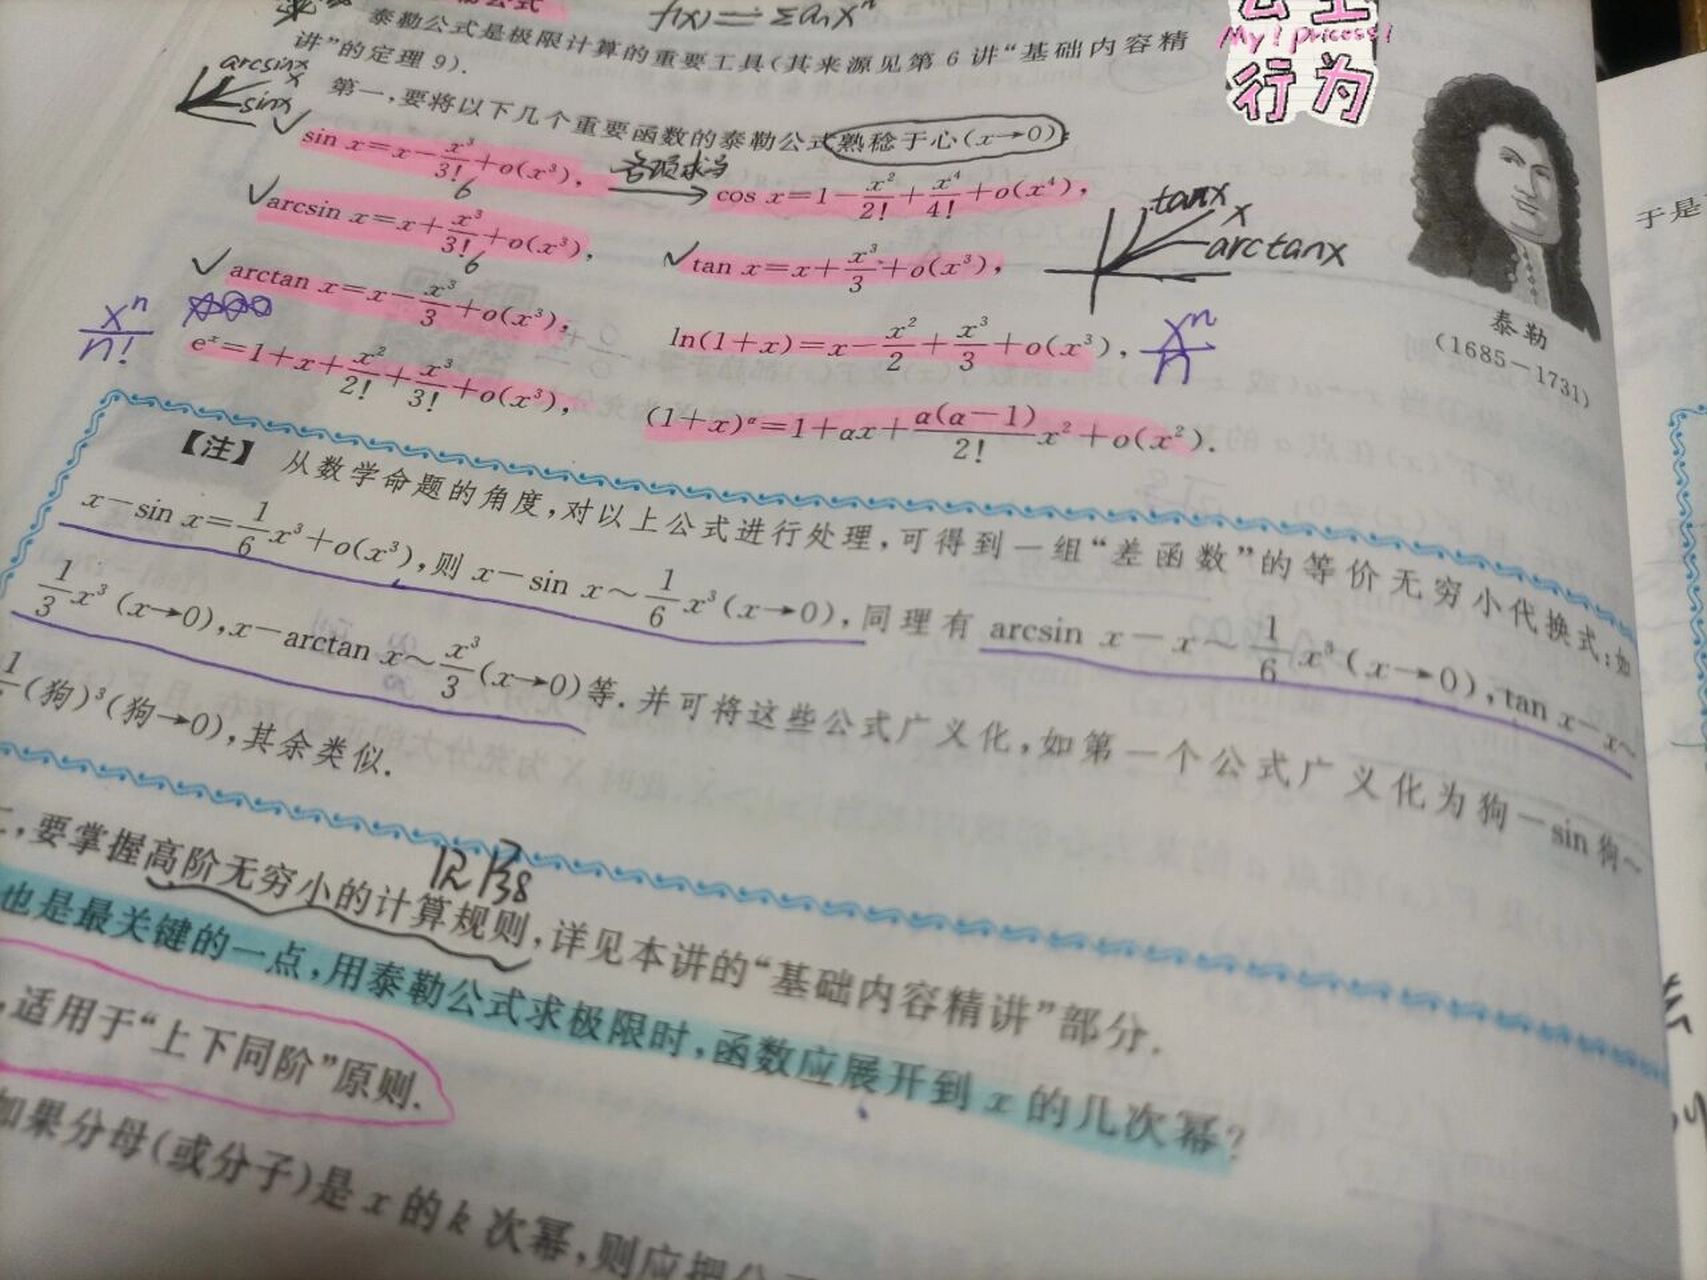 f(x) = Σaₙxⁿ
泰勒公式是极限计算的重要工具(其来源见第 6 讲“基础内容精
讲”的定理 9).
My! pricess!
行为
arcsinx
x
sinx
第一,要将以下几个重要函数的泰勒公式熟稔于心(x→0):
✓ sin x=x-x³/3!+o(x³), 6 各项求导 → cos x=1-x²/2!+x⁴/4!+o(x⁴),
✓ arcsin x=x+x³/3!+o(x³), 6 ✓ tan x=x+x³/3+o(x³),
tanx
x
arctanx
✓ arctan x=x-x³/3+o(x³), ln(1+x)=x-x²/2+x³/3+o(x³), xⁿ/n
xⁿ/n! eˣ=1+x+x²/2!+x³/3!+o(x³), (1+x)^α=1+αx+α(α-1)/2! x²+o(x²).
泰勒
(1685—1731)
于是
【注】 从数学命题的角度,对以上公式进行处理,可得到一组“差函数”的等价无穷小代换式:如
x-sin x=1/6 x³+o(x³),则 x-sin x~1/6 x³(x→0),同理有 arcsin x-x~1/6 x³(x→0),tan x-x~
1/3 x³(x→0),x-arctan x~x³/3(x→0)等.并可将这些公式广义化,如第一个公式广义化为狗-sin 狗~
(狗)³(狗→0),其余类似.
,要掌握高阶无穷小的计算规则,详见本讲的“基础内容精讲”部分.
也是最关键的一点,用泰勒公式求极限时,函数应展开到 x 的几次幂?
,适用于“上下同阶”原则.
如果分母(或分子)是 x 的 k 次幂,则应把分